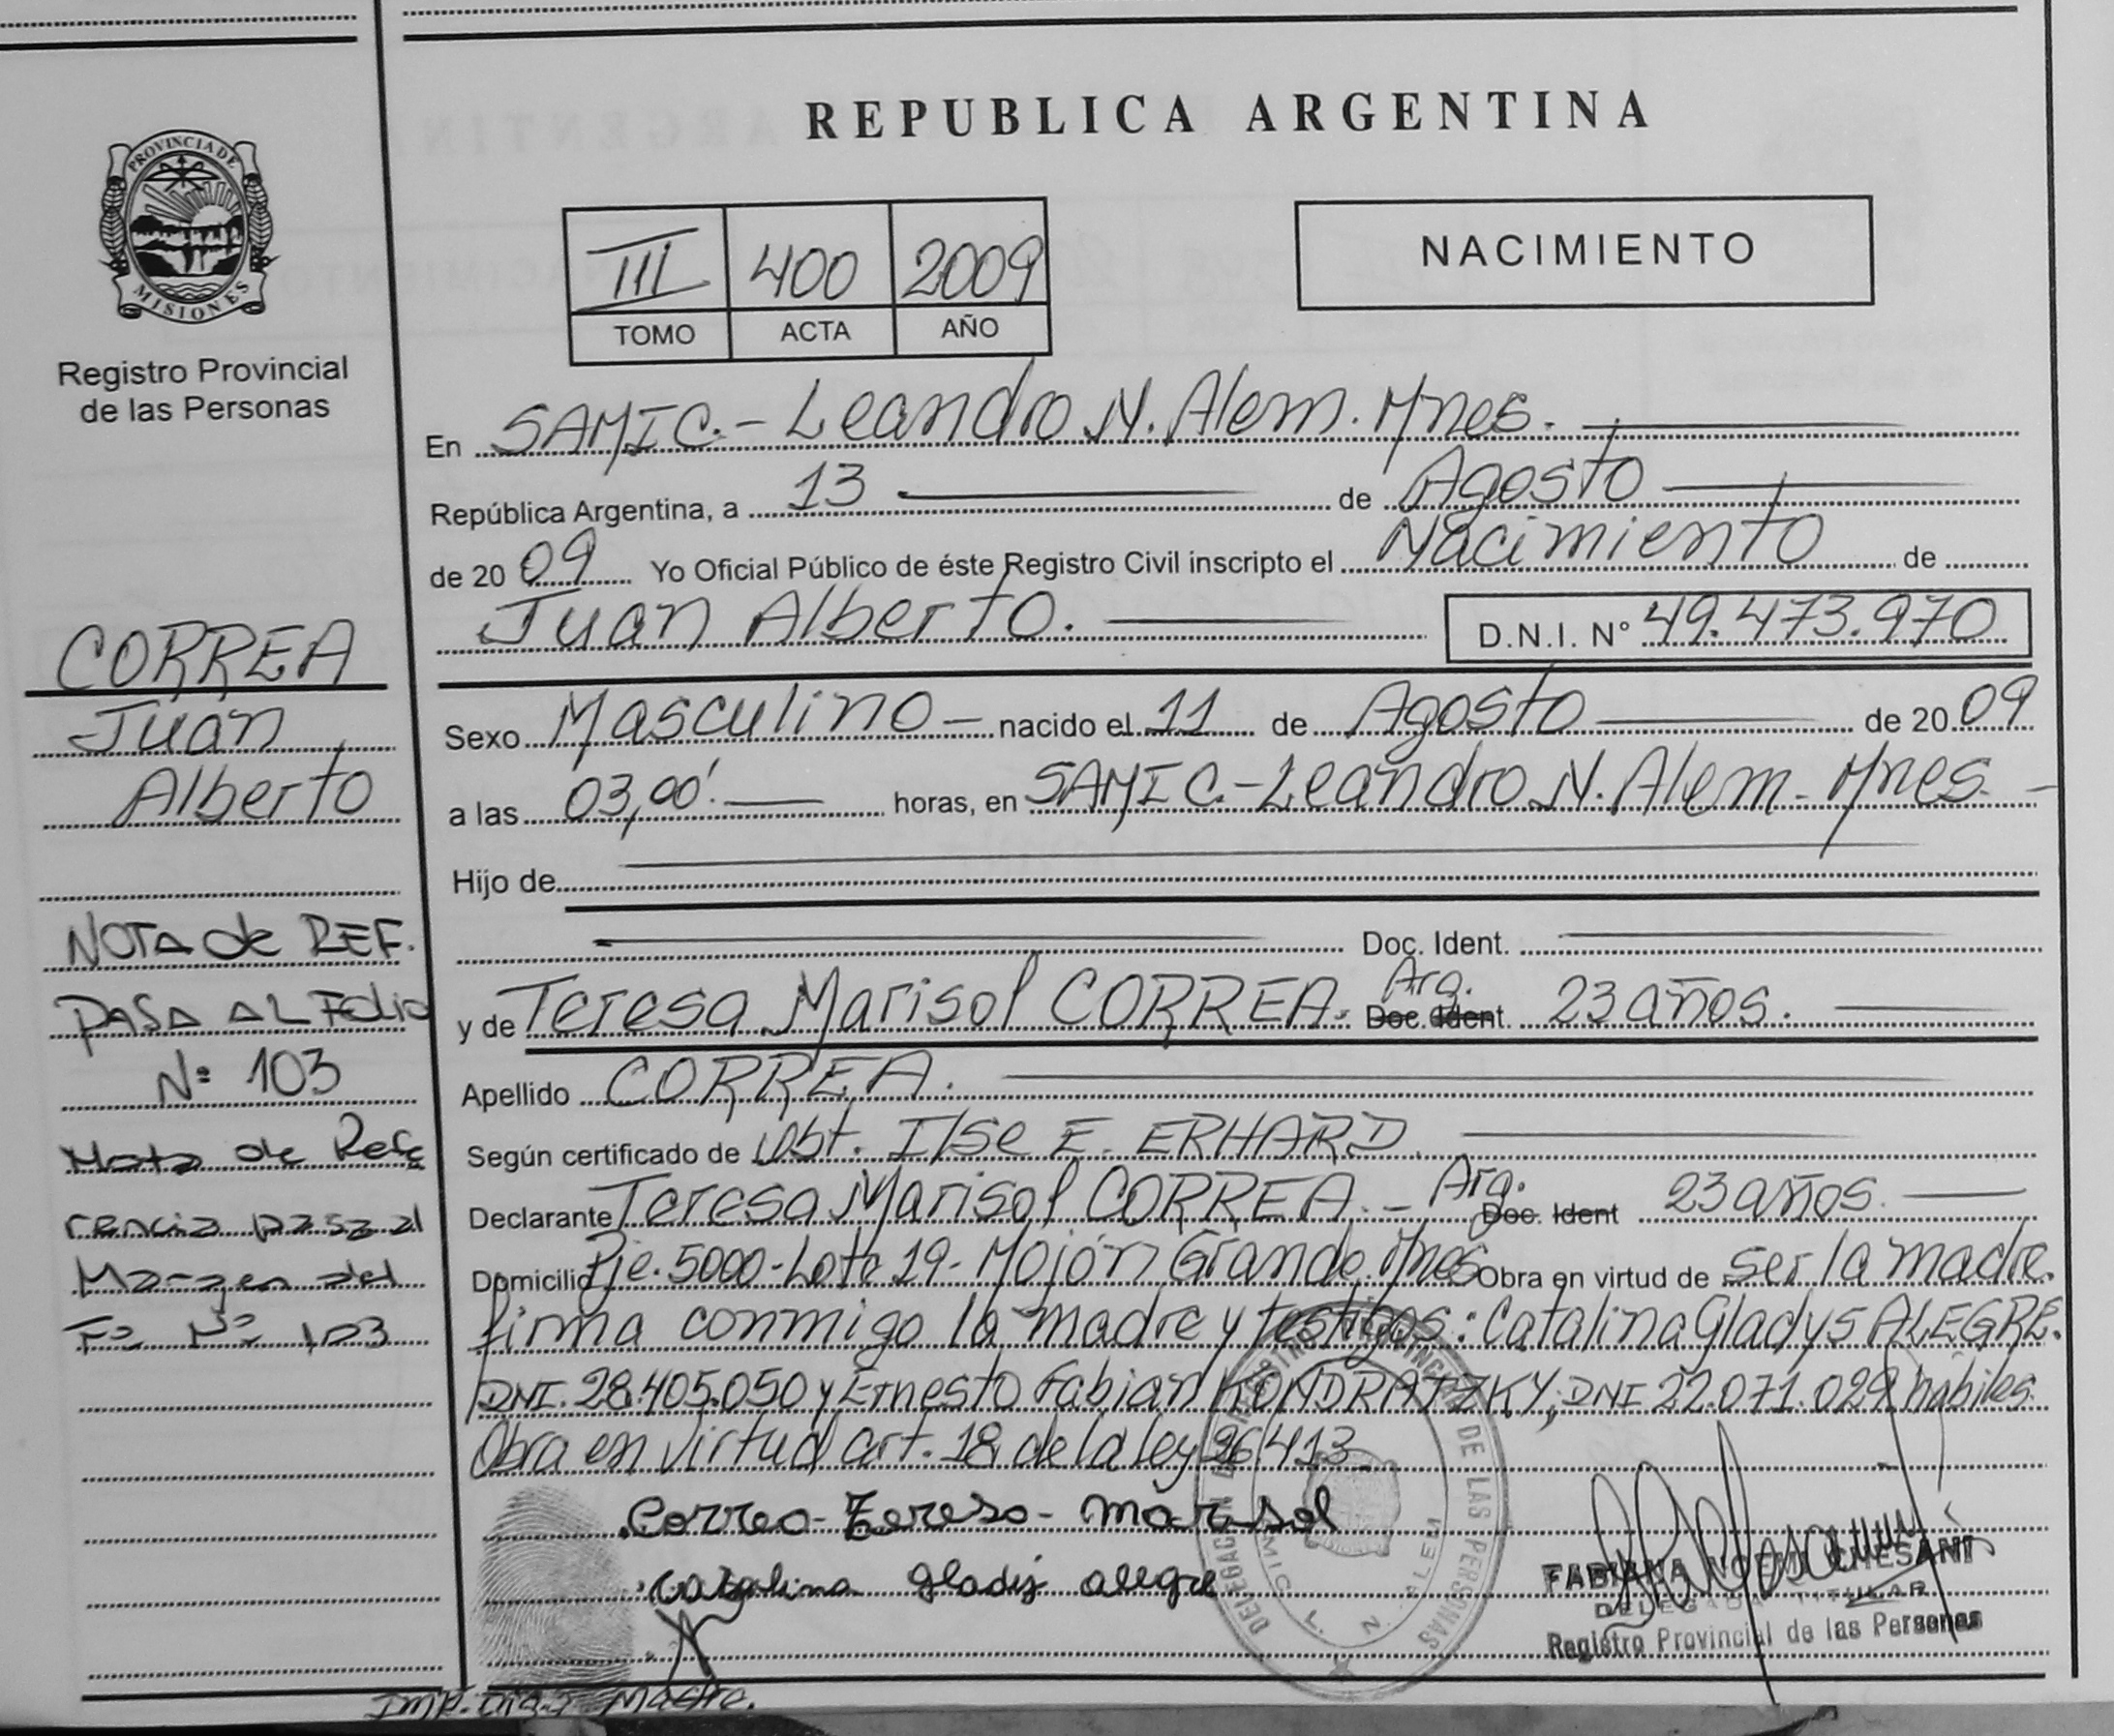 REPUBLICA ARGENTINA
PROVINCIA DE
MISIONES
Registro Provincial
de las Personas
III 400 2009
TOMO ACTA AÑO
NACIMIENTO
En SAMIC.- Leandro N. Alem. Mnes.
República Argentina, a 13 de Agosto
de 2009 Yo Oficial Público de éste Registro Civil inscripto el Nacimiento de
Juan Alberto. D.N.I. Nº 49.473.970
CORREA
Juan
Alberto
Sexo Masculino nacido el 11 de Agosto de 2009
a las 03,00'. horas, en SAMIC.-Leandro N. Alem. Mnes.
Hijo de
Doc. Ident.
y de Teresa Marisol CORREA. Arg. Doc. Ident. 23 años.
Apellido CORREA.
Según certificado de Obst. Ilse E. ERHARD.
Declarante Teresa Marisol CORREA. - Arg. Doc. Ident 23 años.
Domicilio Pje. 5000-Lote 19- Mojón Grande. Mnes Obra en virtud de ser la madre.
firma conmigo la madre y testigos: Catalina Gladys ALEGRE.
DNI. 28.405.050 y Ernesto Fabian KONDRATZKY, DNI 22.071.029 habiles.
Obra en virtud art. 18 de la ley 26.413
NOTA de REF.
PASA AL Folio
Nº 103
Nota de Refe
rencia pasa al
Margen del
Fº Nº 103
Correa-Teresa-Marisol
Catalina gladis alegre
DELEGACION REGISTRO PROVINCIAL DE LAS PERSONAS
L. N. ALEM
FABIANA NOEMI CHESANI
DELEGADA TITULAR
Registro Provincial de las Personas
Imp. Dig. Madre.